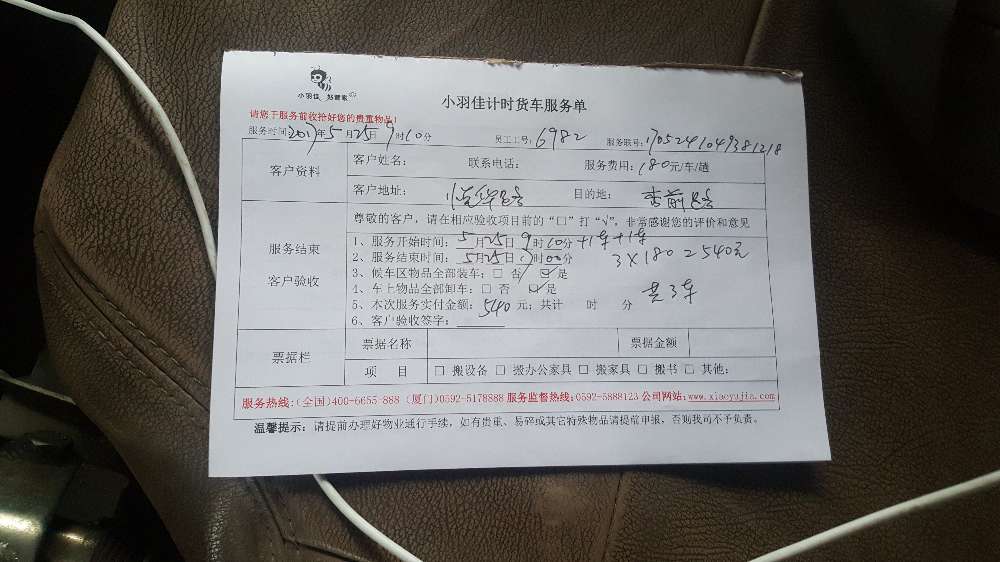 小羽佳 好管家
小羽佳计时货车服务单
请您于服务前收拾好您的贵重物品!
服务时间:2017年5月25日9时10分 员工工号:6982 服务联号:1705241049381218
客户资料 客户姓名: 联系电话: 服务费用:180元/车/趟
客户地址: 悦华路 目的地: 前路
尊敬的客户,请在相应验收项目前的“□”打“√”。非常感谢您的评价和意见
服务结束
客户验收
1、服务开始时间:5月25日9时10分 +1车+1车
2、服务结束时间:5月25日 时00分 3×180=540元
3、候车区物品全部装车:□ 否 ☑是
4、车上物品全部卸车:□ 否 ☑是 共3车
5、本次服务实付金额:540元;共计 时 分
6、客户验收签字:
票据栏 票据名称 票据金额
项 目 □ 搬设备 □ 搬办公家具 □ 搬家具 □ 搬书 □ 其他:
服务热线:(全国)400-6655-888 (厦门)0592-5178888 服务监督热线:0592-5888123 公司网站:www.xiaoyujia.com
温馨提示:请提前办理好物业通行手续,如有贵重、易碎或其它特殊物品请提前申报,否则我司不予负责。